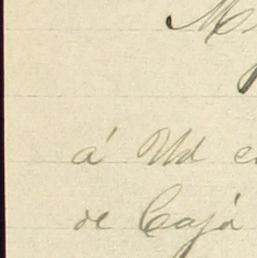 M
á Ud e
de Cajá